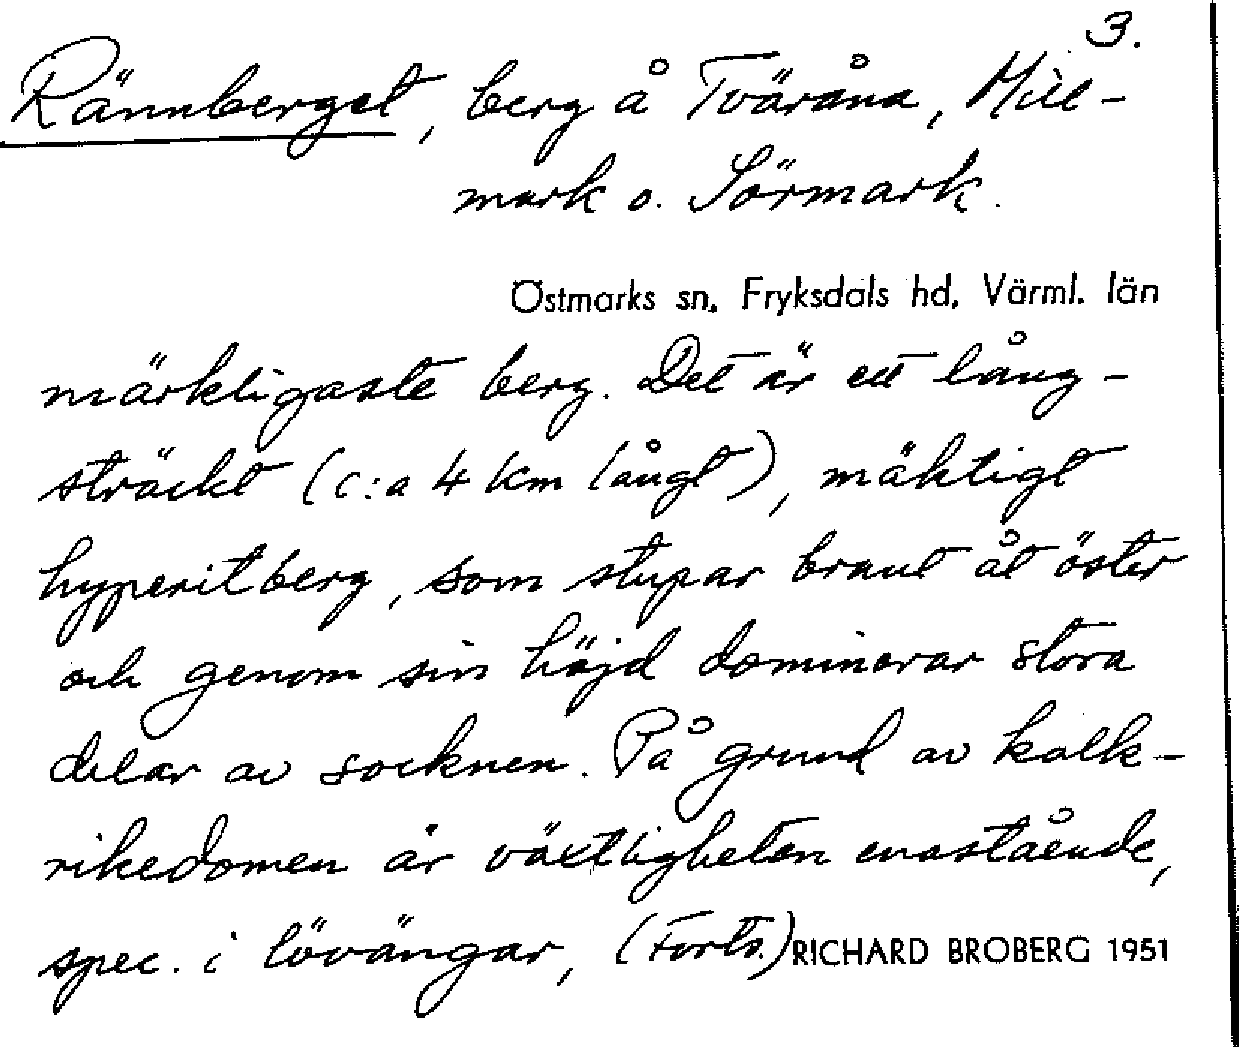 3.
Rännberget, berg å Tväråna, Mill-
mark o. Sörmark.
Östmarks sn. Fryksdals hd. Värml. län
märkligaste berg. Det är ett lång-
sträckt (c:a 4 km långt), mäktigt
hyperitberg, som stupar brant åt öster
och genom sin höjd dominerar stora
delar av socknen. På grund av kalk-
rikedomen är växtligheten enastående,
spec. i lövängar, (Forts.) RICHARD BROBERG 1951